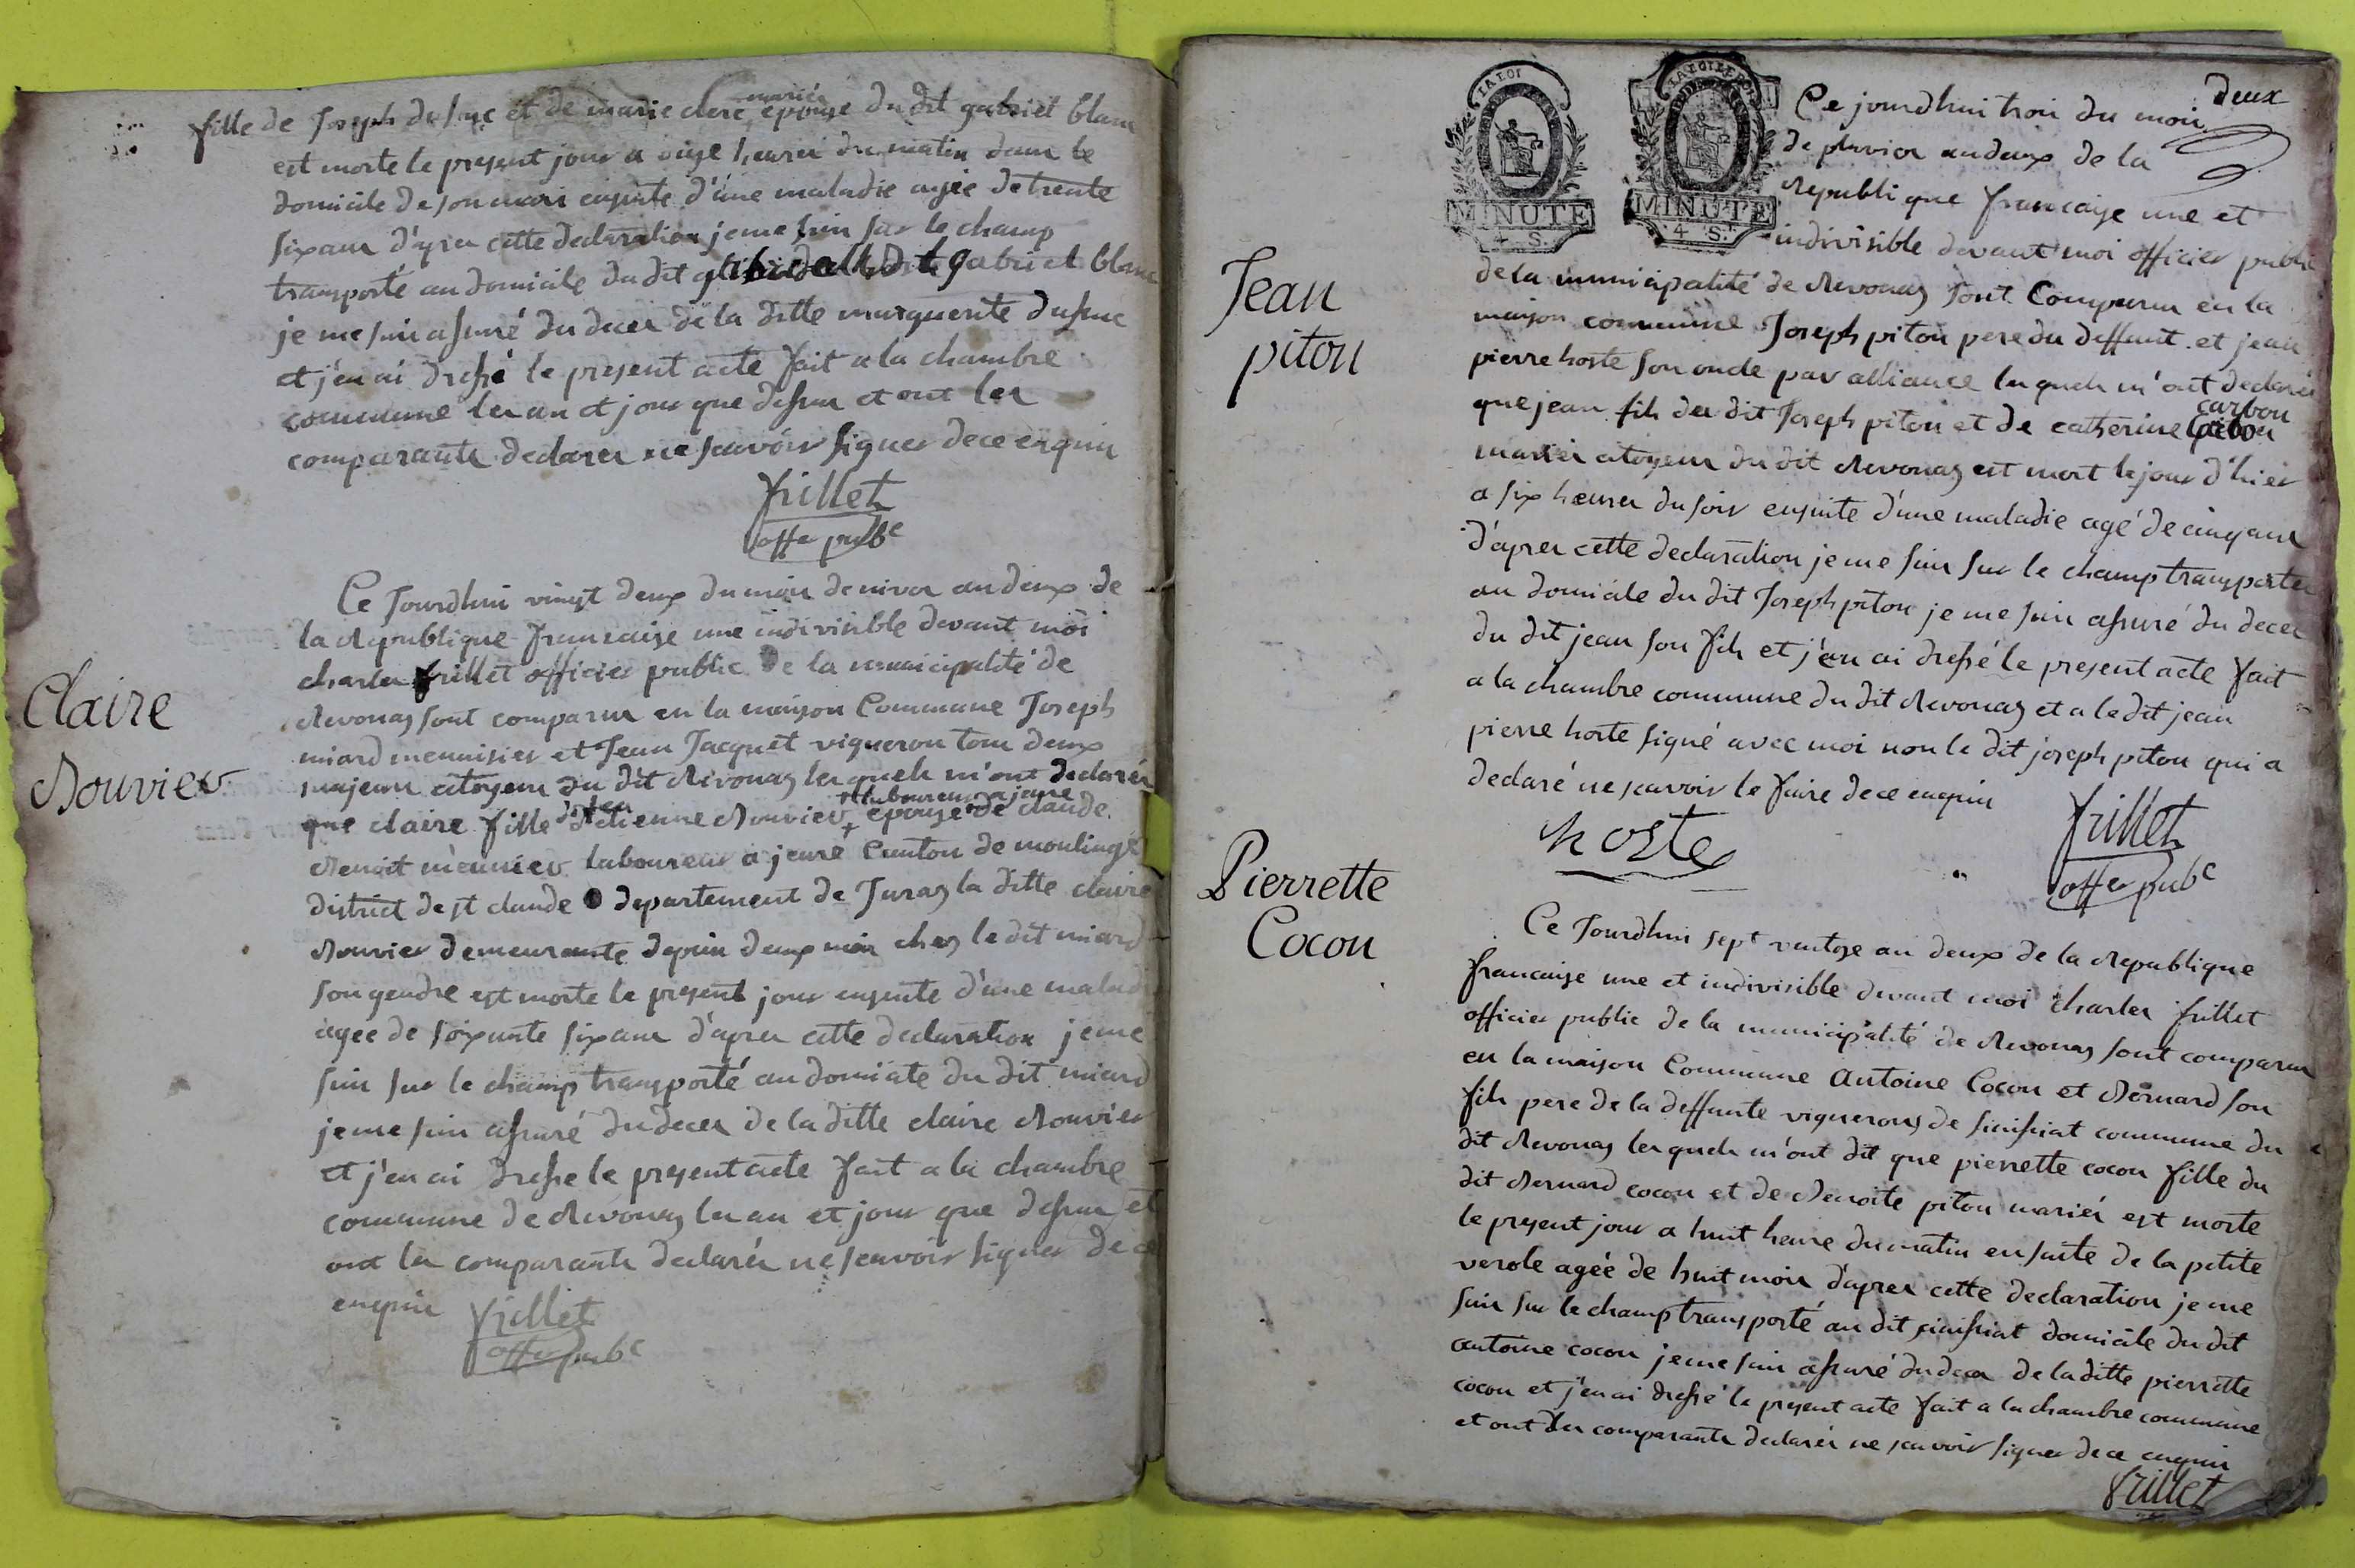 fille de Joseph dufuc et de marie clerc mariés epouse du dit gabriel blanc
est morte le present jour a onze heures du matin dans le
domicile de son mari ensuite d'une maladie agée de trente
six ans d'apres cette declaration je me suis sur le champ
transporté au domicile du dit gabriel blanc
je me suis assuré du deces de la ditte marguerite dufuc
et j'en ai dressé le present acte fait a la chambre
commune les an et jour que dessus et ont les
comparants declarer ne scavoir signer de ce enquis
frillet
offer pubc
Ce Jourdhui vingt deux du mois de nivos an deux de
la Republique francaise une indivisible devant moi
charles frillet officier public de la municipalité de
Revonas sont comparus en la maison Commune Joseph
miard menuisier et Jean Jacquet vigneron tous deux
majeurs citoyens du dit Revonas lesquels m'ont declarés
laboureur a jeure
que claire fille d'etienne Bouvier + epouse de claude
Benoit meunier laboureur a jeure Canton de moulinge
district de st claude departement de Juras la ditte claire
Bouvier demeurante depuis deux mois chez le dit miard
son gendre est morte le present jour ensuite d'une maladie
agée de soixante six ans d'apres cette declaration je me
suis sur le champ transporté au domicile du dit miard
je me suis assuré du deces de la ditte claire Bouvier
et j'en ai dresse le present acte fait a la chambre
commune de Revonas les an et jour que dessus et
ont les comparants declarés ne scavoir signer de ce
enquis frillet
offer pubc
Claire
Bouvier
deux
LA LOI
MINUTE
4 S.
LA LOI LE ROI
MINUTE
4 S.
Ce jourdhui trois du mois
de pluvios an deux de la
Republique francaise une et
indivisible devant moi officier public
de la municipalité de Revonas sont Comparus en la
maison commune Joseph piton pere du deffunt et jean
pierre hoste son oncle par alliance lesquels m'ont declarés
carbon
que jean fils du dit Joseph piton et de catherine
mariés citoyens du dit Revonas est mort le jour d'hier
a six heures du soir ensuite d'une maladie agé de cinq ans
d'apres cette declaration je me suis sur le champ transporté
au domicile du dit Joseph piton je me suis assuré du deces
du dit jean son fils et j'en ai dressé le present acte fait
a la chambre commune du dit Revonas et a le dit jean
pierre hoste signé avec moi non le dit joseph piton qui a
declaré ne scavoir le faire de ce enquis
hoste
frillet
offer pubc
Ce Jourdhui sept ventose an deux de la Republique
francaise une et indivisible devant moi charles frillet
officier public de la municipalité de Revonas sont comparus
en la maison Commune Antoine Cocon et Bernard son
fils pere de la deffunte vignerons de sinissiat commune du
dit Revonas lesquels m'ont dit que pierrette cocon fille du
dit Bernard cocon et de Benoite piton mariés est morte
le present jour a huit heure du matin ensuite de la petite
verole agée de huit mois d'apres cette declaration je me
suis sur le champ transporté au dit sinissiat domicile du dit
antoine cocon je me suis assuré du deces de la ditte pierrette
cocon et j'en ai dressé le present acte fait a la chambre commune
et ont les comparants declarés ne scavoir signer de ce enquis
frillet
Jean
piton
Pierrette
Cocon